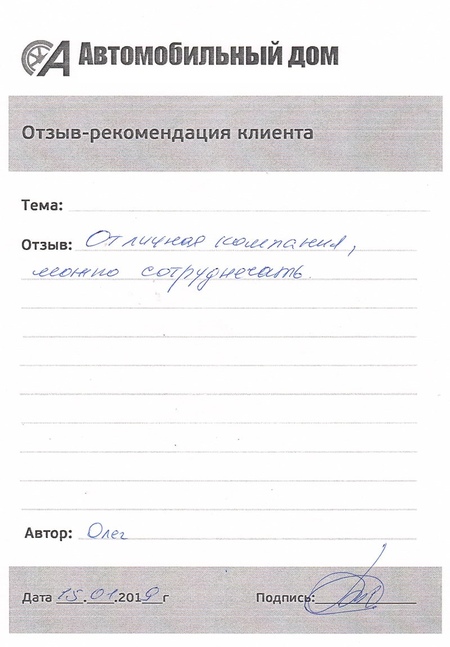 Автомобильный дом
Отзыв-рекомендация клиента
Тема:
Отзыв: Отличная компания,
можно сотрудничать.
Автор: Олег
Дата 15.01.2019 г Подпись: